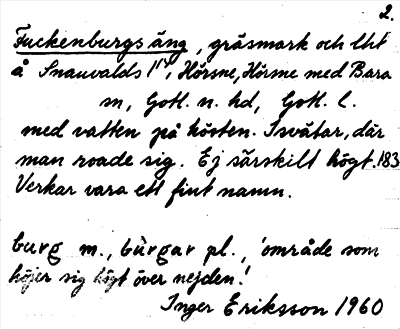 2.
Fuckenburgs äng, gräsmark och litet
å Snauvalds 1¹⁴, Hörsne, Hörsne med Bara
sn, Gotl. n. hd, Gotl. l.
med vatten på hösten. Isvätar, där
man roade sig. Ej särskilt högt. 183
Verkar vara ett fint namn.
burg m., bùrgar pl., 'område som
höjer sig högt över nejden.'
Inger Eriksson 1960